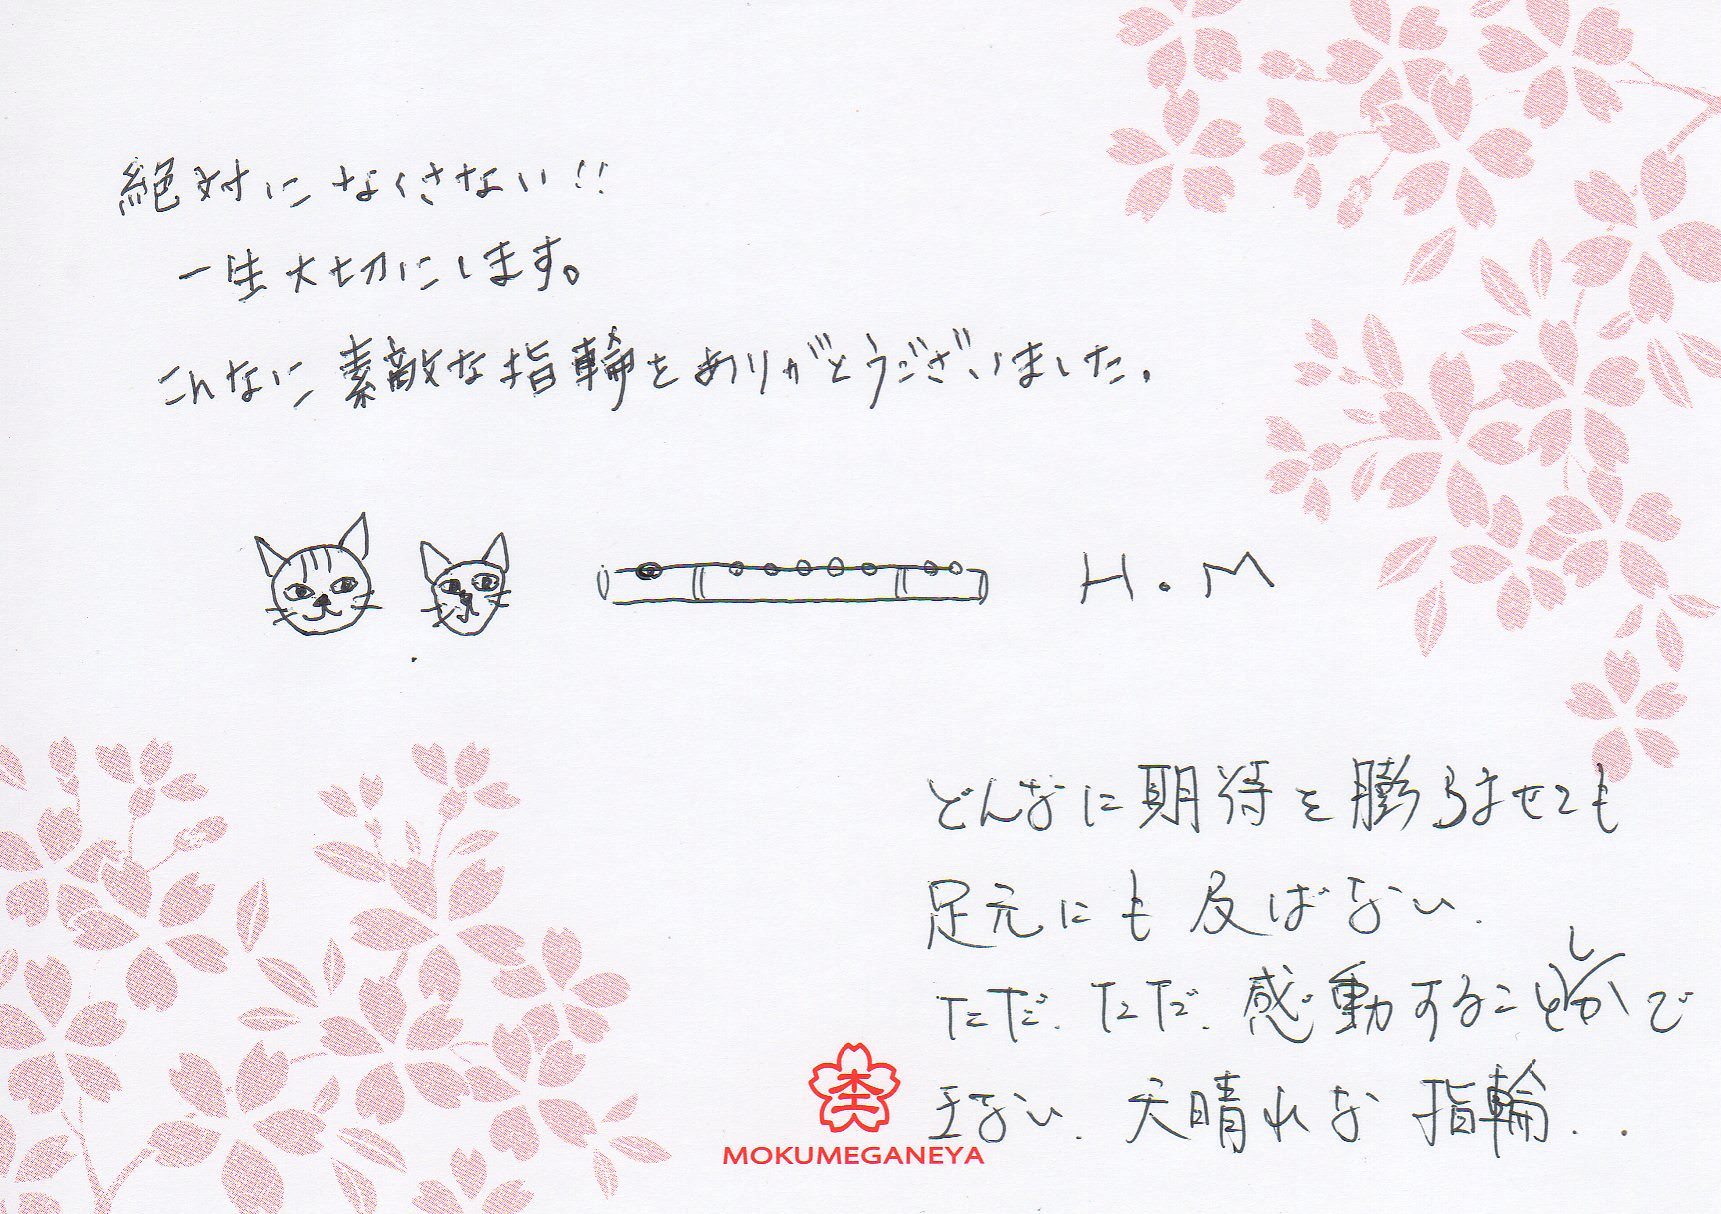 絶対になくさない!!
一生大切にします。
こんなに素敵な指輪をありがとうございました。
H.M
どんなに期待を膨らませても
足元にも及ばない.
ただ.ただ.感動することしかで
きない.天晴れな指輪..
MOKUMEGANEYA